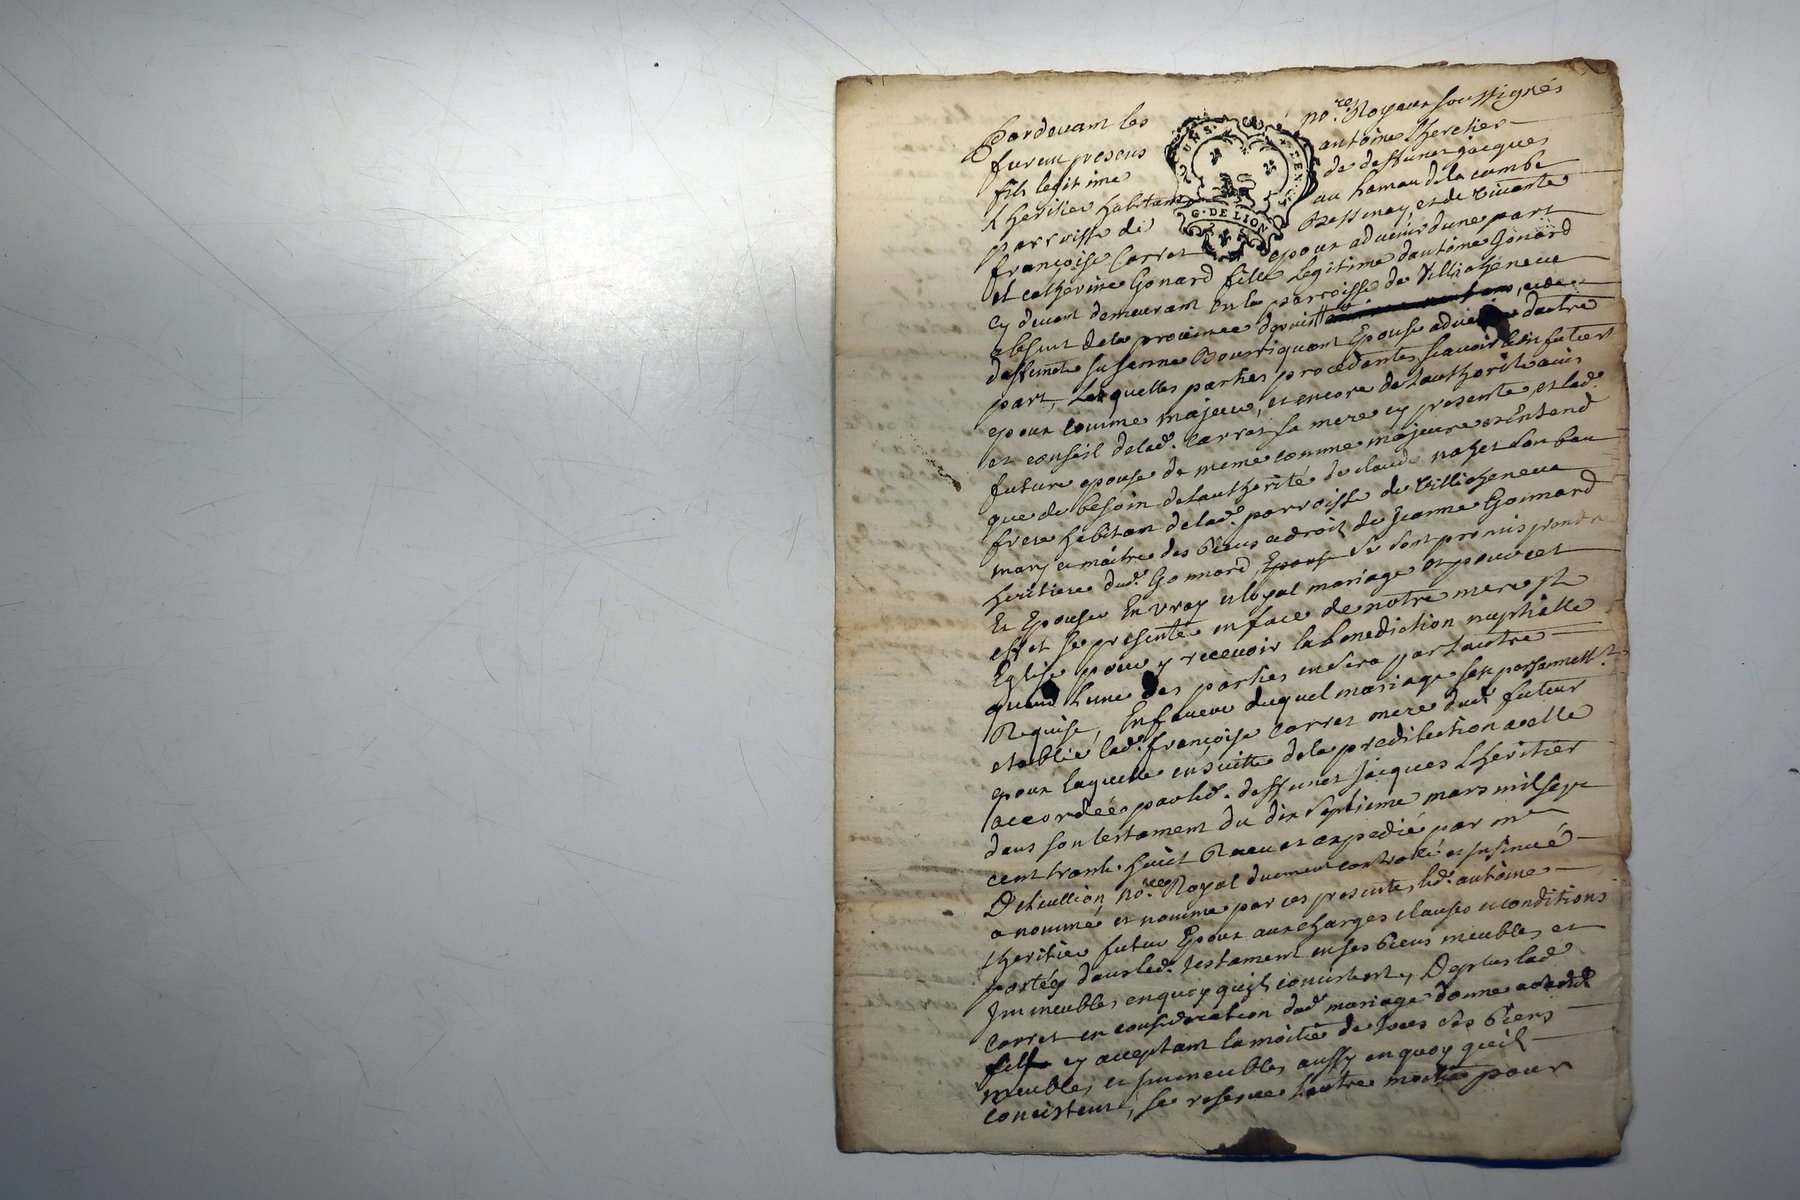 Pardevant les no.re Royaux soussignés
furent presens antoine Lheretier
fils legitime de deffunct jacques
Lheritier habitant au hameau de la combe
parroisse de Bessenay, et de vivante
françoise Carret epoux advenir dune part
et catherine Gonard fille Legitime dantoine Gonard
cy devant demeurant en la parroisse de Villechenève
absent de la province depuis et de
deffuncte susanne Bourriquant Epouse advenir dautre
part, Lesquelles parties procedantes scavoir led. futur
epoux comme majeur, et encore de lauthorité avis
et conseil de lad. Carret sa mere cy presente, et lad.
future epouse de meme comme majeure et Entend
que de besoin de lauthorité de claude son beau
frere habitant de lad. parroisse de Villechenève
mary et maitre des biens et droit de jeanne Gonnard
heritiere dud. Gonnard, se sont promis prendre
Et Epouser En vray et loyal mariage et pour cet
effet se presenter en face de notre mere ste
Eglise pour y recevoir la benediction nuptialle
quand Lune des parties en sera par lautre
Requise, En faveur duquel mariage sest personnellt.
etablie lad. françoise Carret mere dud. futur
epoux laquelle en suitte de la predilection a elle
accordée par led. deffunct jacques Lheritier
dans son testament du dix septieme mars mil sept
cent trante huict Receu et expedié par me
no.re Royal duement controllé et insinué
a nommé et nomme par ces presentes led. antoine
Lheritier futur Epoux aux charges clauses et conditions
portés dans led. testament en ses biens meubles et
Immeubles en quoy quils concistent, De plus lad.
Carret en consideration dud. mariage donne a sond.
fils cy acceptant la moitié de tous ses biens
meubles et Immeubles aussy en quoy quil
concistent, se reserve Lautre moitié pour
G. DE LION